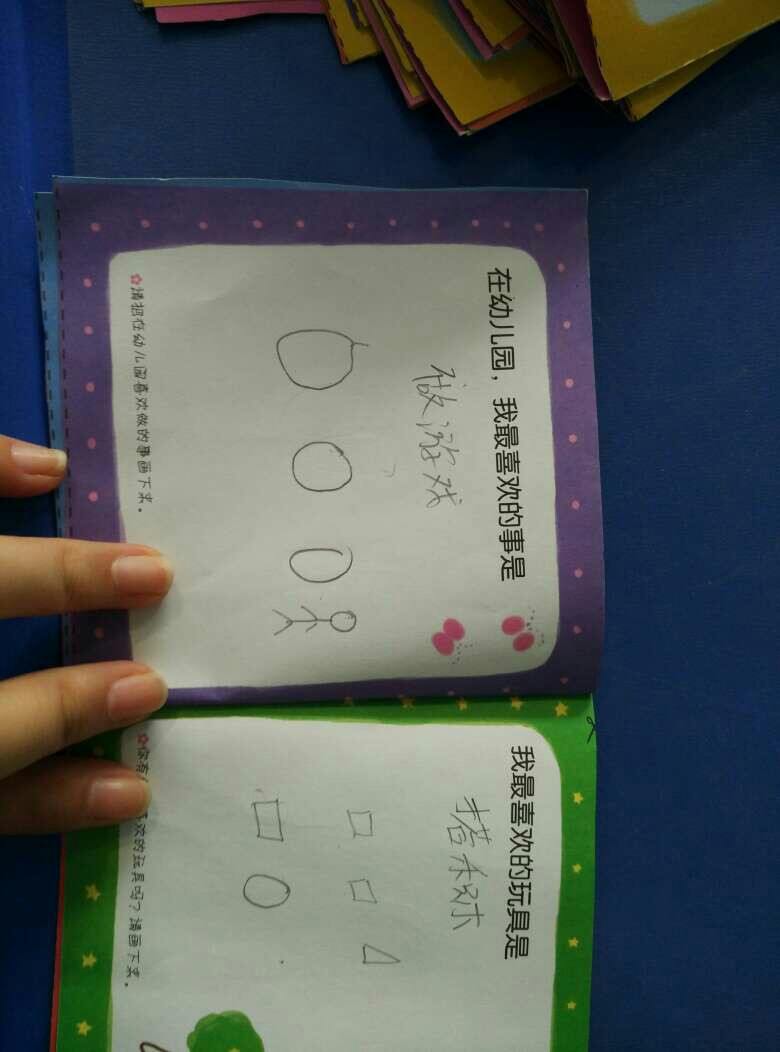 在幼儿园，我最喜欢的事是
做游戏
✿请把在幼儿园喜欢做的事画下来。
我最喜欢的玩具是
搭积木
✿你有 欢的玩具吗？请画下来。